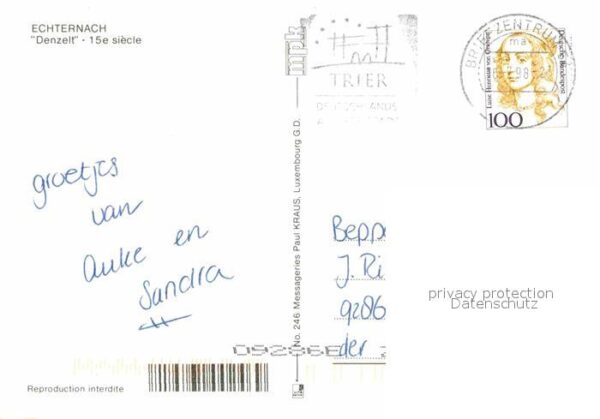 ECHTERNACH
"Denzelt" - 15e siècle
mpk
TRIER
DEUTSCHLANDS
BRIEFZENTRUM
ma
Luise Henriette von Oranien
Deutsche Bundespost
100
groetjes
van
Auke en
Sandra
No. 246. Messageries Paul KRAUS, Luxembourg G.D.
Beppe
J. Ri
9286
der
privacy protection
Datenschutz
Reproduction interdite